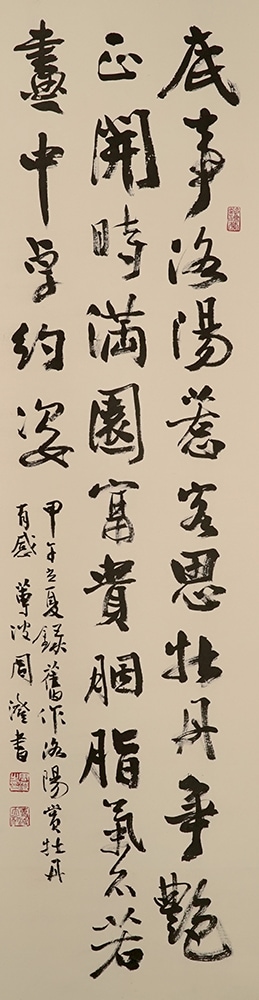 底事洛陽惹客思牡丹爭艷
正開時滿園富貴胭脂氣不若
畫中卓約姿
甲午立夏錄舊作洛陽賞牡丹
有感 蓴波周澄書